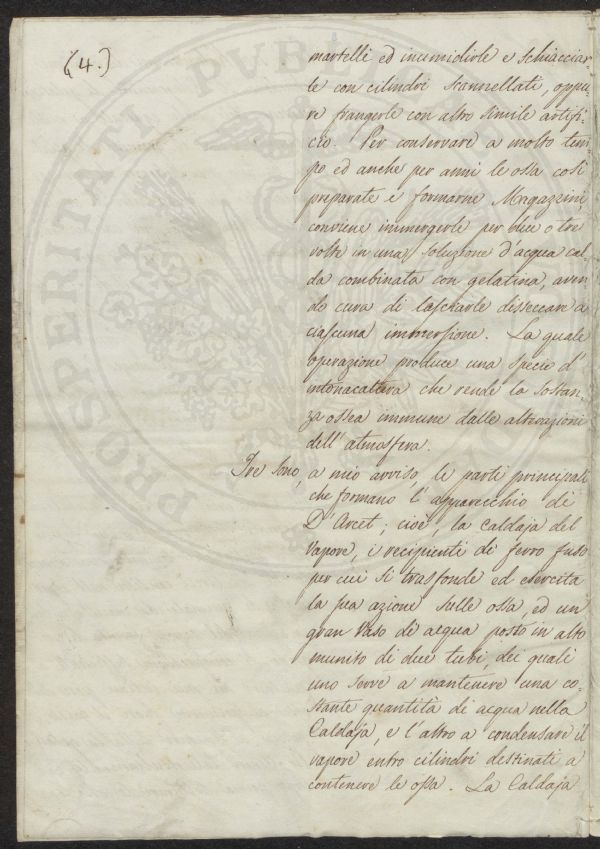 (4.)
martelli ed inumidirle e schiacciar-
le con cilindri scannellati, oppu-
re frangerle con altro simile artifi-
cio. Per conservare a molto tem-
po ed anche per anni le ossa così
preparate e formarne Magazzini,
conviene immergerle per due o tre
volte in una soluzione d'acqua cal-
da combinata con gelatina, aven-
do cura di lasciarle disseccare a
ciascuna immersione. La quale
operazione produce una specie d'
intonacatura che rende la sostan-
za ossea immune dalle alterazioni
dell'atmosfera.
Tre sono, a mio avviso, le parti principali
che formano l'apparecchio di
D'Arcet; cioè, la Caldaja del
vapore, i recipienti di ferro fuso
per cui si trasfonde ed esercita
la sua azione sulle ossa, ed un
gran Vaso di acqua posto in alto
munito di due tubi, dei quali
uno serve a mantenere una co-
stante quantità di acqua nella
Caldaja, e l'altro a condensare il
vapore entro cilindri destinati a
contenere le ossa. La Caldaja
PROSPERITATI PVBLI